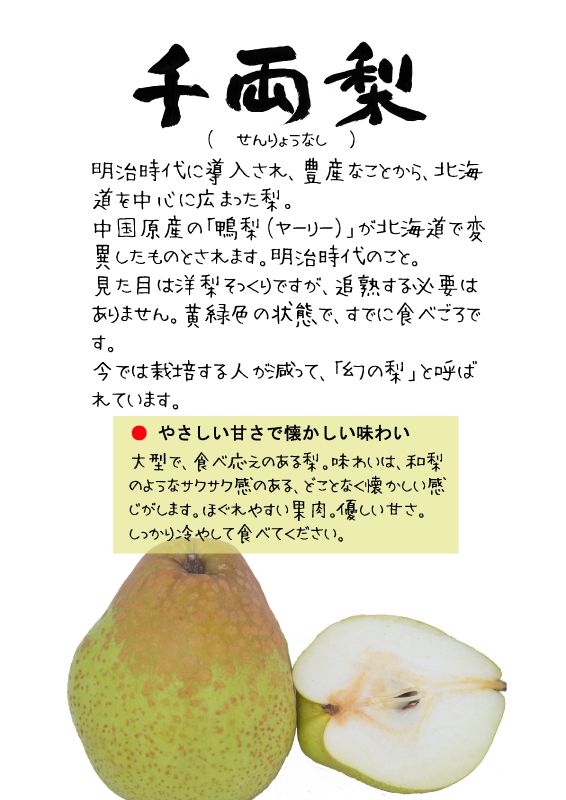 千両梨
(せんりょうなし)
明治時代に導入され、豊産なことから、北海
道を中心に広まった梨。
中国原産の「鴨梨(ヤーリー)」が北海道で変
異したものとされます。明治時代のこと。
見た目は洋梨そっくりですが、追熟する必要は
ありません。黄緑色の状態で、すでに食べごろで
す。
今では栽培する人が減って、「幻の梨」と呼ば
れています。
● やさしい甘さで懐かしい味わい
大型で、食べ応えのある梨。味わいは、和梨
のようなサクサク感のある、どことなく懐かしい感
じがします。ほぐれやすい果肉。優しい甘さ。
しっかり冷やして食べてください。